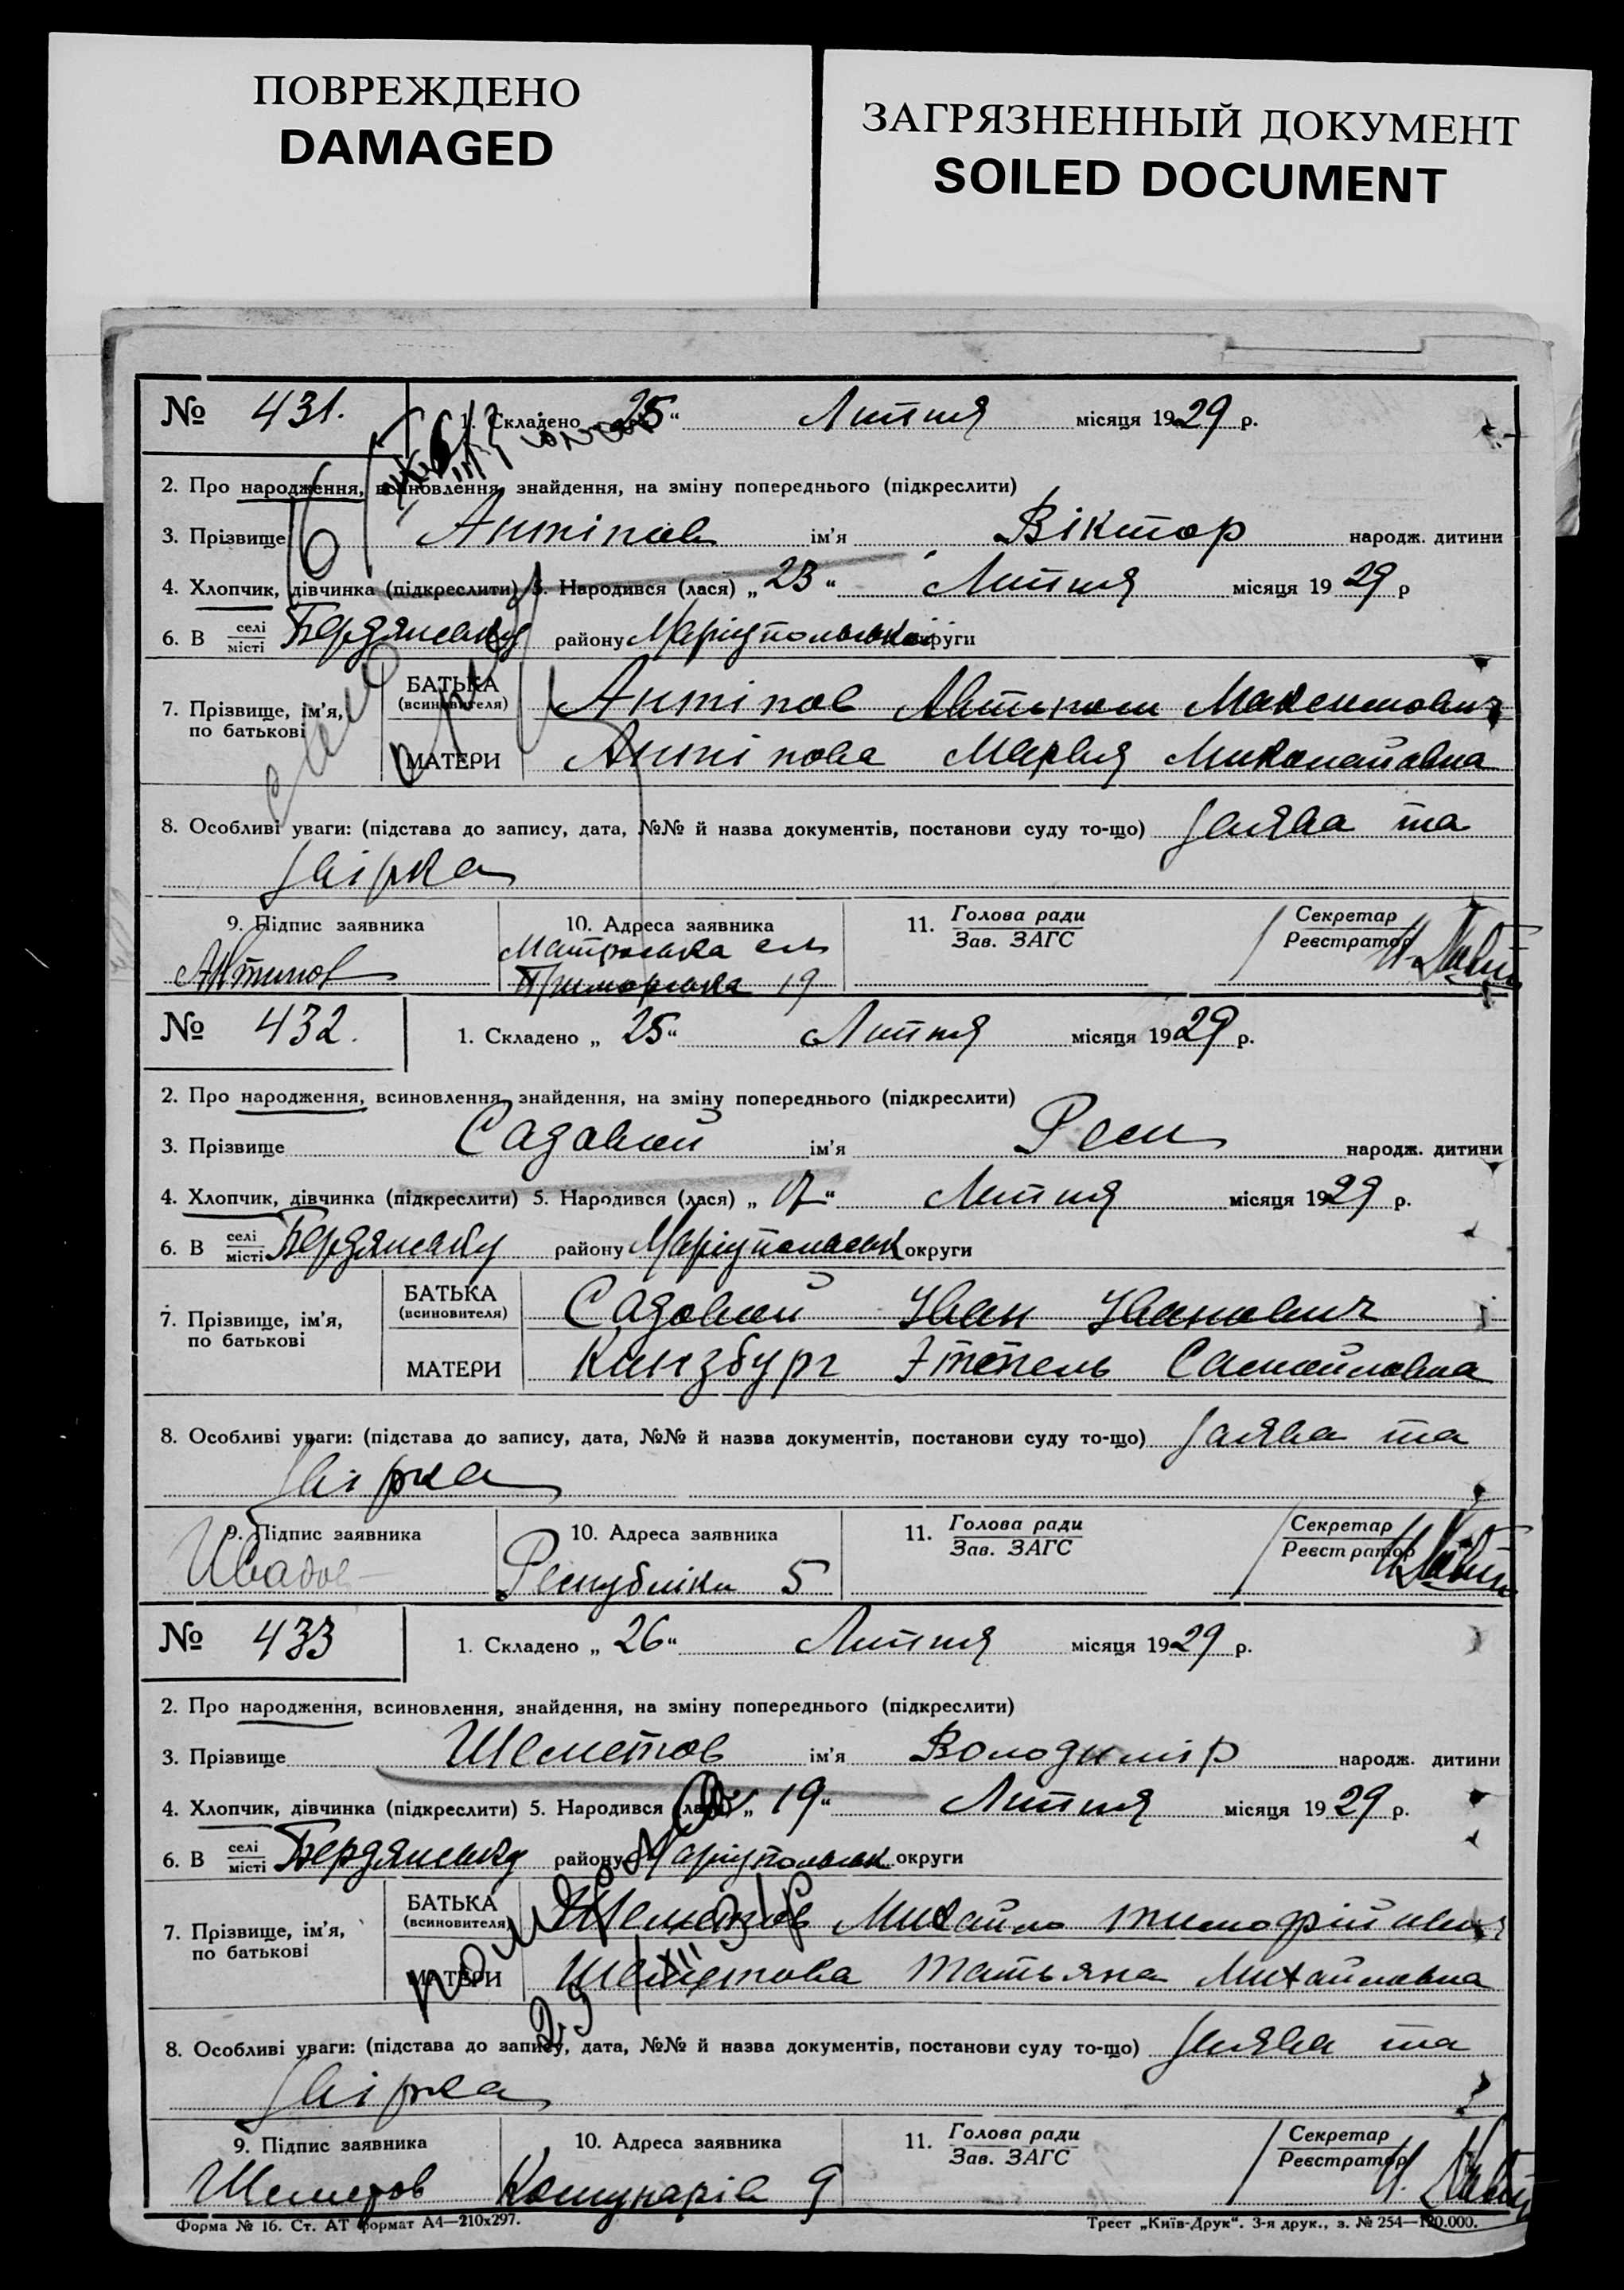 ПОВРЕЖДЕНО
DAMAGED
ЗАГРЯЗНЕННЫЙ ДОКУМЕНТ
SOILED DOCUMENT
№ 431. 1. Складено „25“ Липня місяця 1929 р.
2. Про народження, всиновлення, знайдення, на зміну попереднього (підкреслити)
3. Прізвище Антіпов ім'я Віктор народж. дитини
4. Хлопчик, дівчинка (підкреслити) 5. Народився (лася) „23“ Липня місяця 1929 р
6. В селі місті Бердянську району Маріупольської округи
7. Прізвище, ім'я, по батькові
БАТЬКА (всиновителя) Антіпов Максимович
МАТЕРИ Антіпова Марія Миколаївна
8. Особливі уваги: (підстава до запису, дата, №№ й назва документів, постанови суду то-що) Заява та
Звірка
9. Підпис заявника 10. Адреса заявника 11. Голова ради Зав. ЗАГС / Секретар Реєстратор
Антипов Матроська сл
Приморська 19
№ 432. 1. Складено „25“ Липня місяця 1929 р.
2. Про народження, всиновлення, знайдення, на зміну попереднього (підкреслити)
3. Прізвище Садовий ім'я Рем народж. дитини
4. Хлопчик, дівчинка (підкреслити) 5. Народився (лася) „17“ Липня місяця 1929 р.
6. В селі місті Бердянську району Маріупольськ округи
7. Прізвище, ім'я, по батькові
БАТЬКА (всиновителя) Садовий Іван Іванович
МАТЕРИ Кинзбург Этель Самойловна
8. Особливі уваги: (підстава до запису, дата, №№ й назва документів, постанови суду то-що) Заява та
Звірка
9. Підпис заявника 10. Адреса заявника 11. Голова ради Зав. ЗАГС / Секретар Реєстратор
Республіки 5
№ 433 1. Складено „26“ Липня місяця 1929 р.
2. Про народження, всиновлення, знайдення, на зміну попереднього (підкреслити)
3. Прізвище Шеметов ім'я Володимір народж. дитини
4. Хлопчик, дівчинка (підкреслити) 5. Народився (лася) „19“ Липня місяця 1929 р.
6. В селі місті Бердянську району Маріупольськ округи
7. Прізвище, ім'я, по батькові
БАТЬКА (всиновителя) Шеметов Михайло Тимофійович
МАТЕРИ Шеметова Татьяна Михайловна
8. Особливі уваги: (підстава до запису, дата, №№ й назва документів, постанови суду то-що) Заява та
Звірка
9. Підпис заявника 10. Адреса заявника 11. Голова ради Зав. ЗАГС / Секретар Реєстратор
Шеметов Комунарів 9
Форма № 16. Ст. АТ формат А4—210х297. Трест „Київ-Друк“. 3-я друк., з. № 254—120.000.